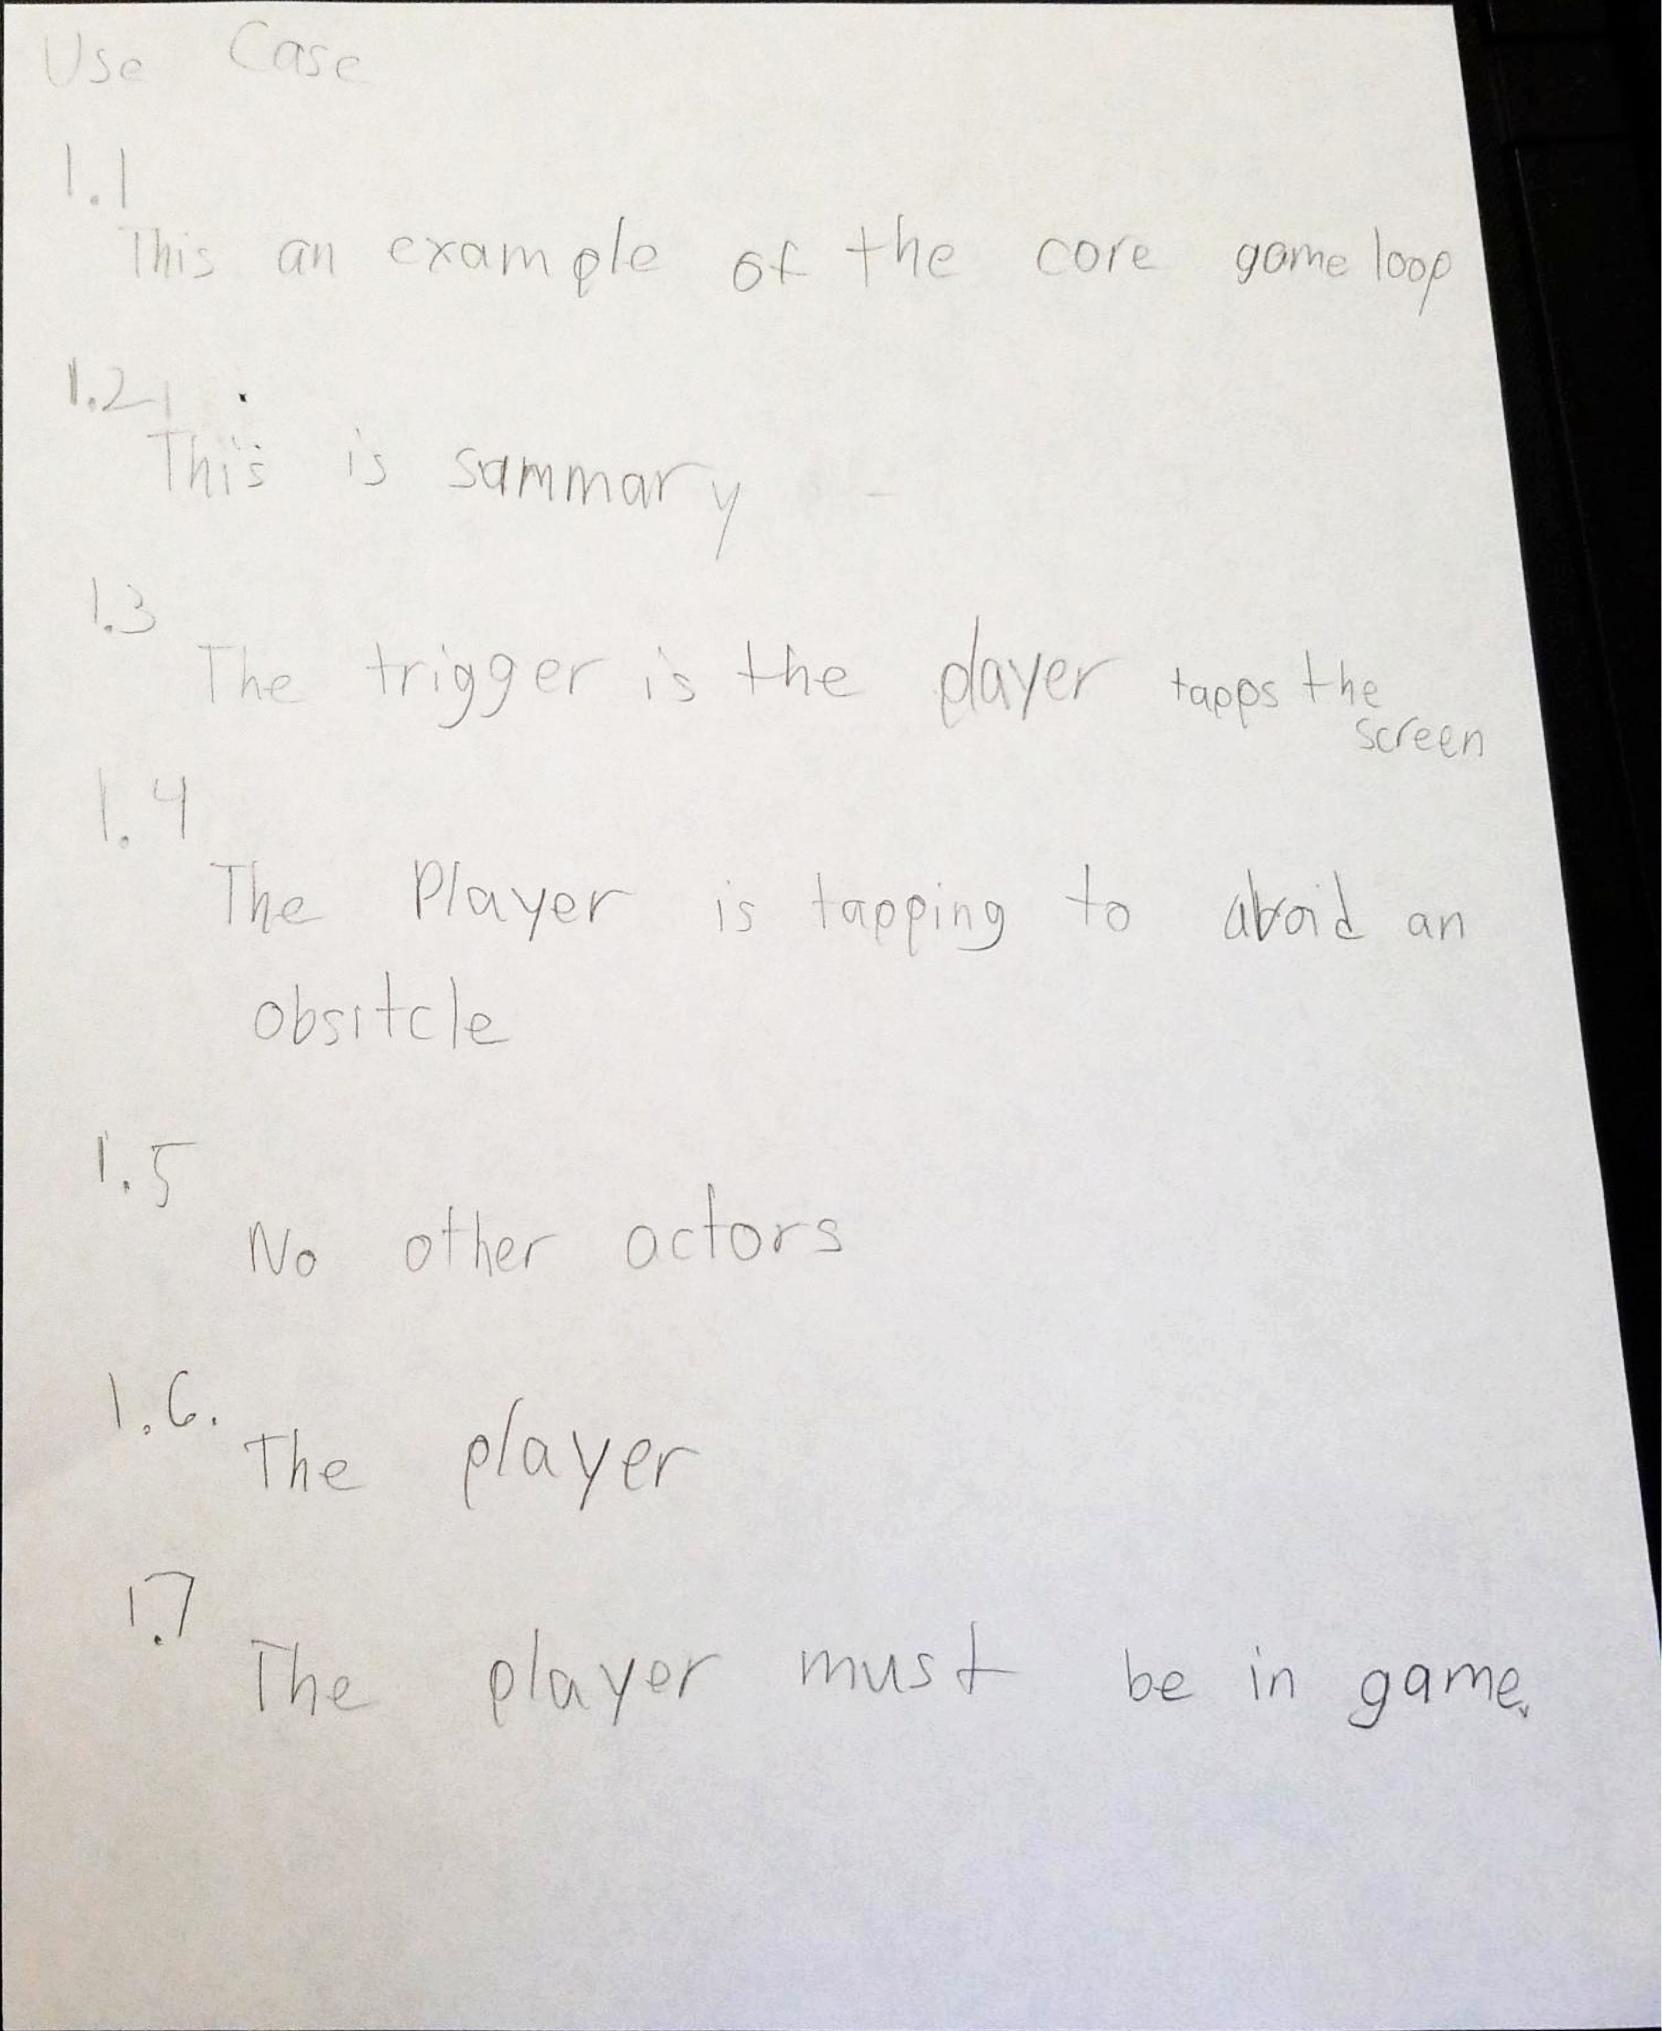 Use Case
1.1
This an example of the core game loop
1.2
This is sammary
1.3
The trigger is the player tapps the
screen
1.4
The Player is tapping to avoid an
obsitcle
1.5
No other actors
1.6.
The player
1.7
The player must be in game.